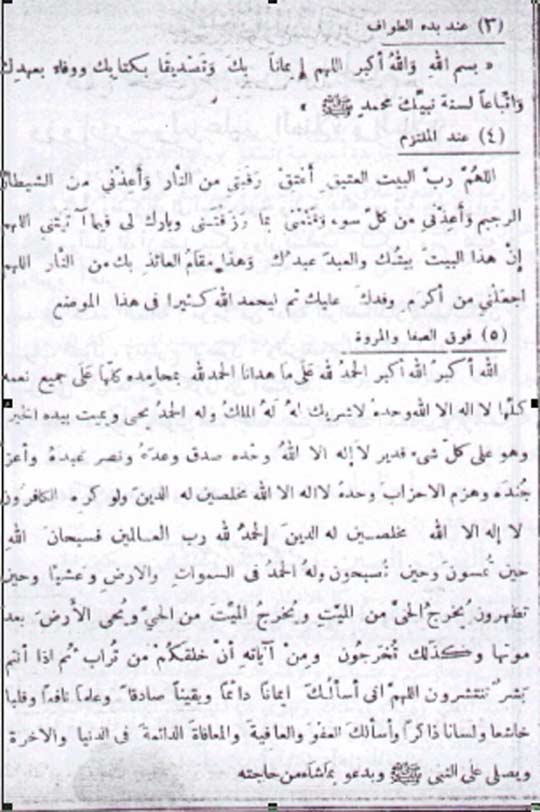 (٣) عند بدء الطواف
« بسم اللهِ وَاللهُ أكبر اللهم إيماناً بكَ وَتَصديقًا بكتابِك ووفاء بعهدِك
وَاتْباعاً لسنة نبيِّك محمدٍ ﷺ »
(٤) عند الملتزم
اللهُمَّ ربَّ البيت العتيق أعتقْ رقبتي من النَّار وَأعذني من الشيطان
الرجيم وأعِذني من كلِّ سوء وَقنِّعْني بما رزقتني وبارك لى فيما آتيتَني اللهم
إنَّ هذا البيتَ بيتُك والعبدَ عبدُك وَهذا مقامُ العائذِ بك من النار اللهم
اجعَلني من أكرَمِ وفدِكَ عليك ثم ليحمد الله كثيرا فى هذا الموضع
(٥) فوق الصفا والمروة
الله أكبرُ الله أكبر الحمدُ لله عَلَى مَا هدانا الحمد لله بمحامده كلِّها عَلَى جميع نعمه
كلِّها لا اله الا اللهُ وَحدهُ لاشريك لهُ لهُ الملك وله الحمدُ يحيى ويميت بيده الخير
وهو على كلِّ شىء قدير لاإله الا اللهُ وحْده صدق وعدهُ ونصر عبدهُ وأعز
جُندَه وهزم الاحزاب وحدهُ لااله الا الله مخلصين له الدينَ ولو كرهَ الكافرون
لا إله الا اللهُ مخلصين له الدينَ الحمدُ لله رب العالمين فسبحان اللهِ
حين تُمسون وحين تُصبحون ولهُ الحمدُ فى السموات والارض وعَشيًّا وحين
تظهرون يُخرجُ الحىَّ من الميِّتِ ويُخرجُ الميِّتَ من الحيِّ ويُحيى الأرضَ بعد
موتها وكذلك تُخرَجون ومنْ آياتِه أنْ خلقكُمْ من تُراب ثُم اذا أنتم
بَشرٌ تنتشرون اللهمَّ انى أسألُكَ ايمانًا دائمًا ويقينًا صادقًا وعلمًا نافعًا وقلبا
خاشعا ولسانا ذاكرًا وأسألك العفوَ والعافيةَ والمعافاةَ الدائمةَ فى الدنيا والآخرة
ويصلى عَلَى النبى ﷺ ويدعو بماشاءمن حاجته